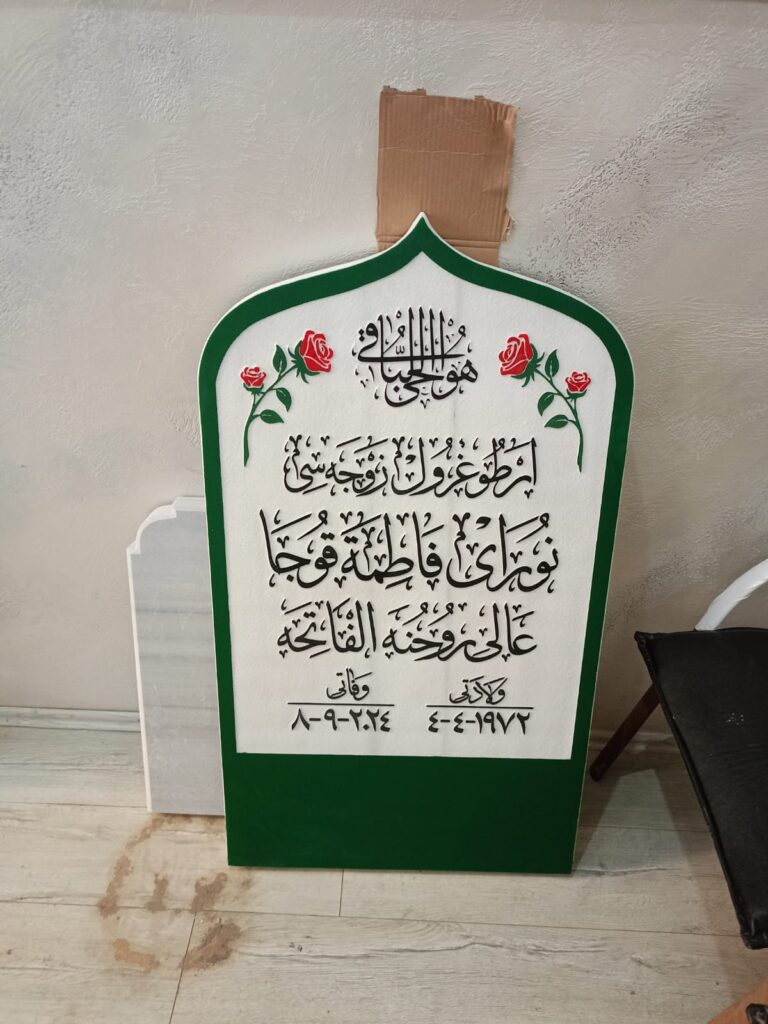 هُوَ الْحَيُّ الْبَاقِي
ارطوغرول زوجه سی
نورای فاطمة قوجا
عالی روحنه الفاتحه
ولادتی
٤-٤-١٩٧٢
وفاتی
٨-٩-٢٠٢٤